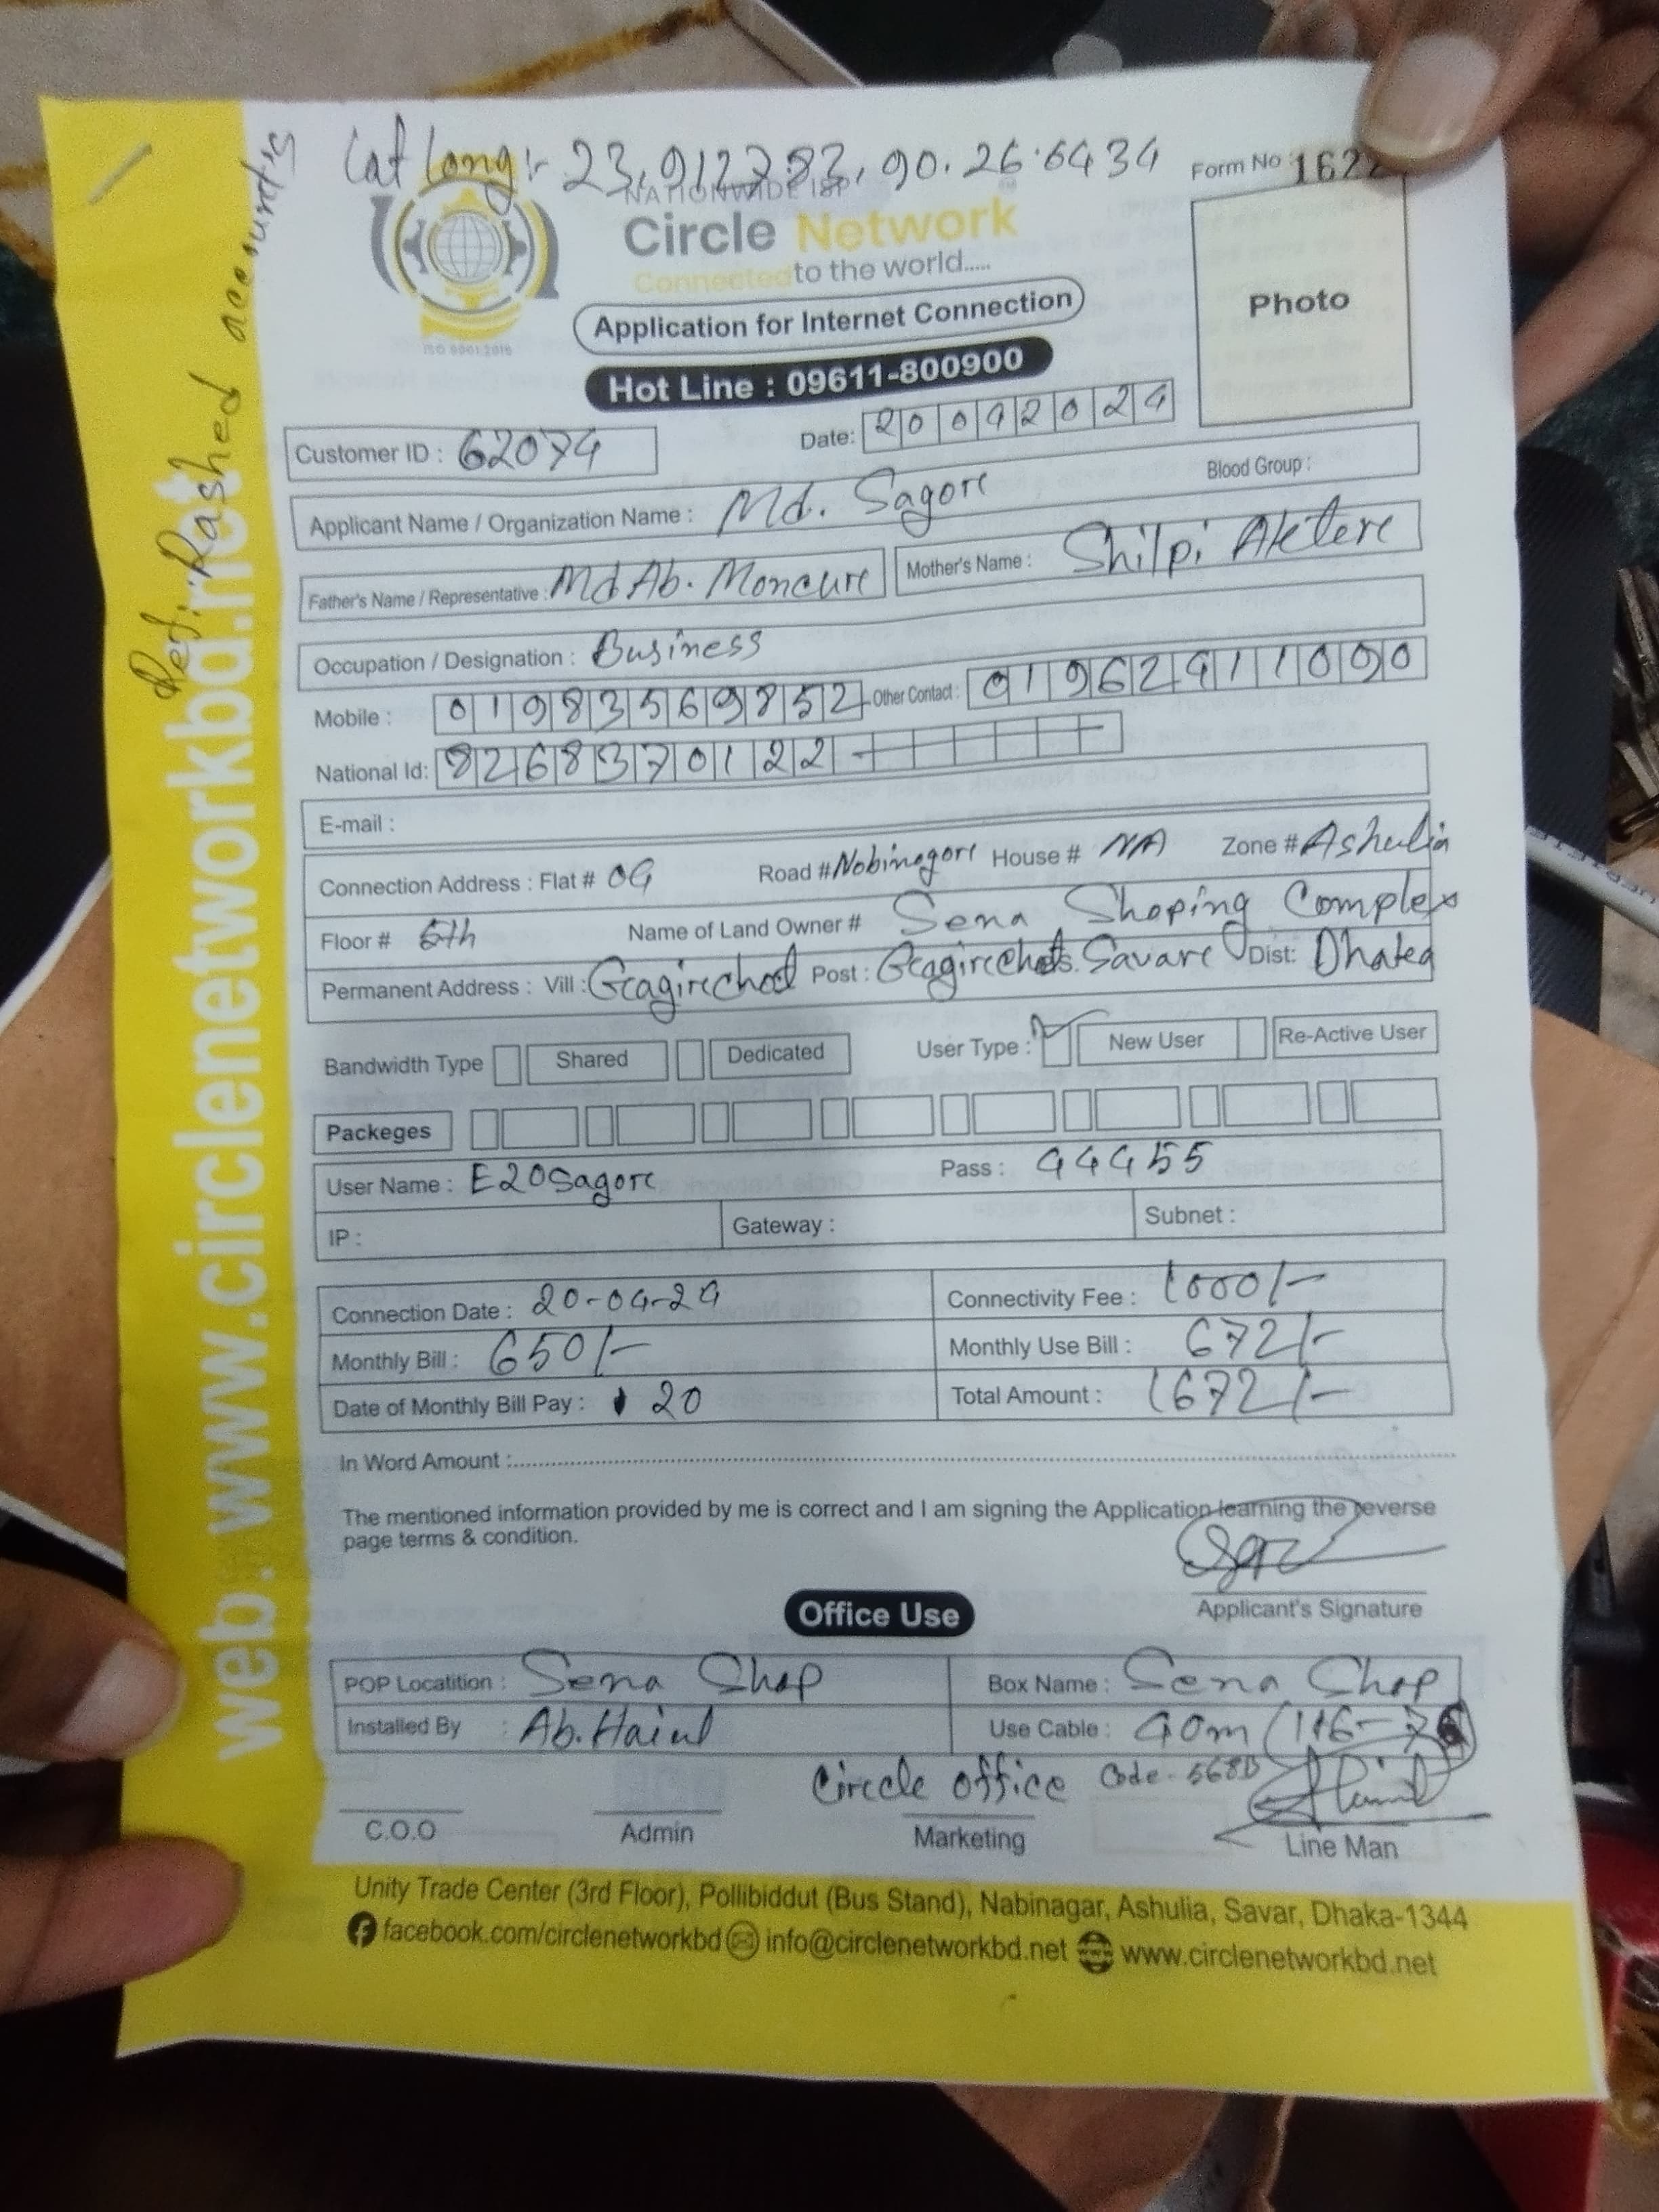 Lat Long:- 23.912783, 90.26.6434
Form No : 162
NATIONWIDE ISP
Circle Network
Connected to the world.....
ISO 9001:2015
Application for Internet Connection
Hot Line : 09611-800900
Photo
Customer ID : 62074
Date: 20042024
Blood Group :
Applicant Name / Organization Name : Md. Sagor
Father's Name / Representative : Md Ab. Moncur Mother's Name : Shilpi Akter
Occupation / Designation : Business
Mobile : 01983569852 Other Contact : 01962411090
National Id: 8268370122
E-mail :
Connection Address : Flat # 04 Road # Nobinogor House # NA Zone # Ashulia
Floor # 5th Name of Land Owner # Sena Shoping Complex
Permanent Address : Vill : Post : Savar Dist: Dhaka
Bandwidth Type Shared Dedicated User Type : New User Re-Active User
Packeges
User Name : E20Sagor Pass : 44455
IP : Gateway : Subnet :
Connection Date : 20-04-24 Connectivity Fee : 1000/-
Monthly Bill : 650/- Monthly Use Bill : 672/-
Date of Monthly Bill Pay : 20 Total Amount : 1672/-
In Word Amount :
The mentioned information provided by me is correct and I am signing the Application learning the reverse
page terms & condition.
Applicant's Signature
Office Use
POP Locatition : Sena Shop Box Name : Sena Shop
Installed By : Ab. Use Cable : 40m
Circle office Code - 568D
C.O.O Admin Marketing Line Man
Unity Trade Center (3rd Floor), Pollibiddut (Bus Stand), Nabinagar, Ashulia, Savar, Dhaka-1344
facebook.com/circlenetworkbd info@circlenetworkbd.net www.circlenetworkbd.net
web. www.circlenetworkbd.net
Ref: Rashed accounts